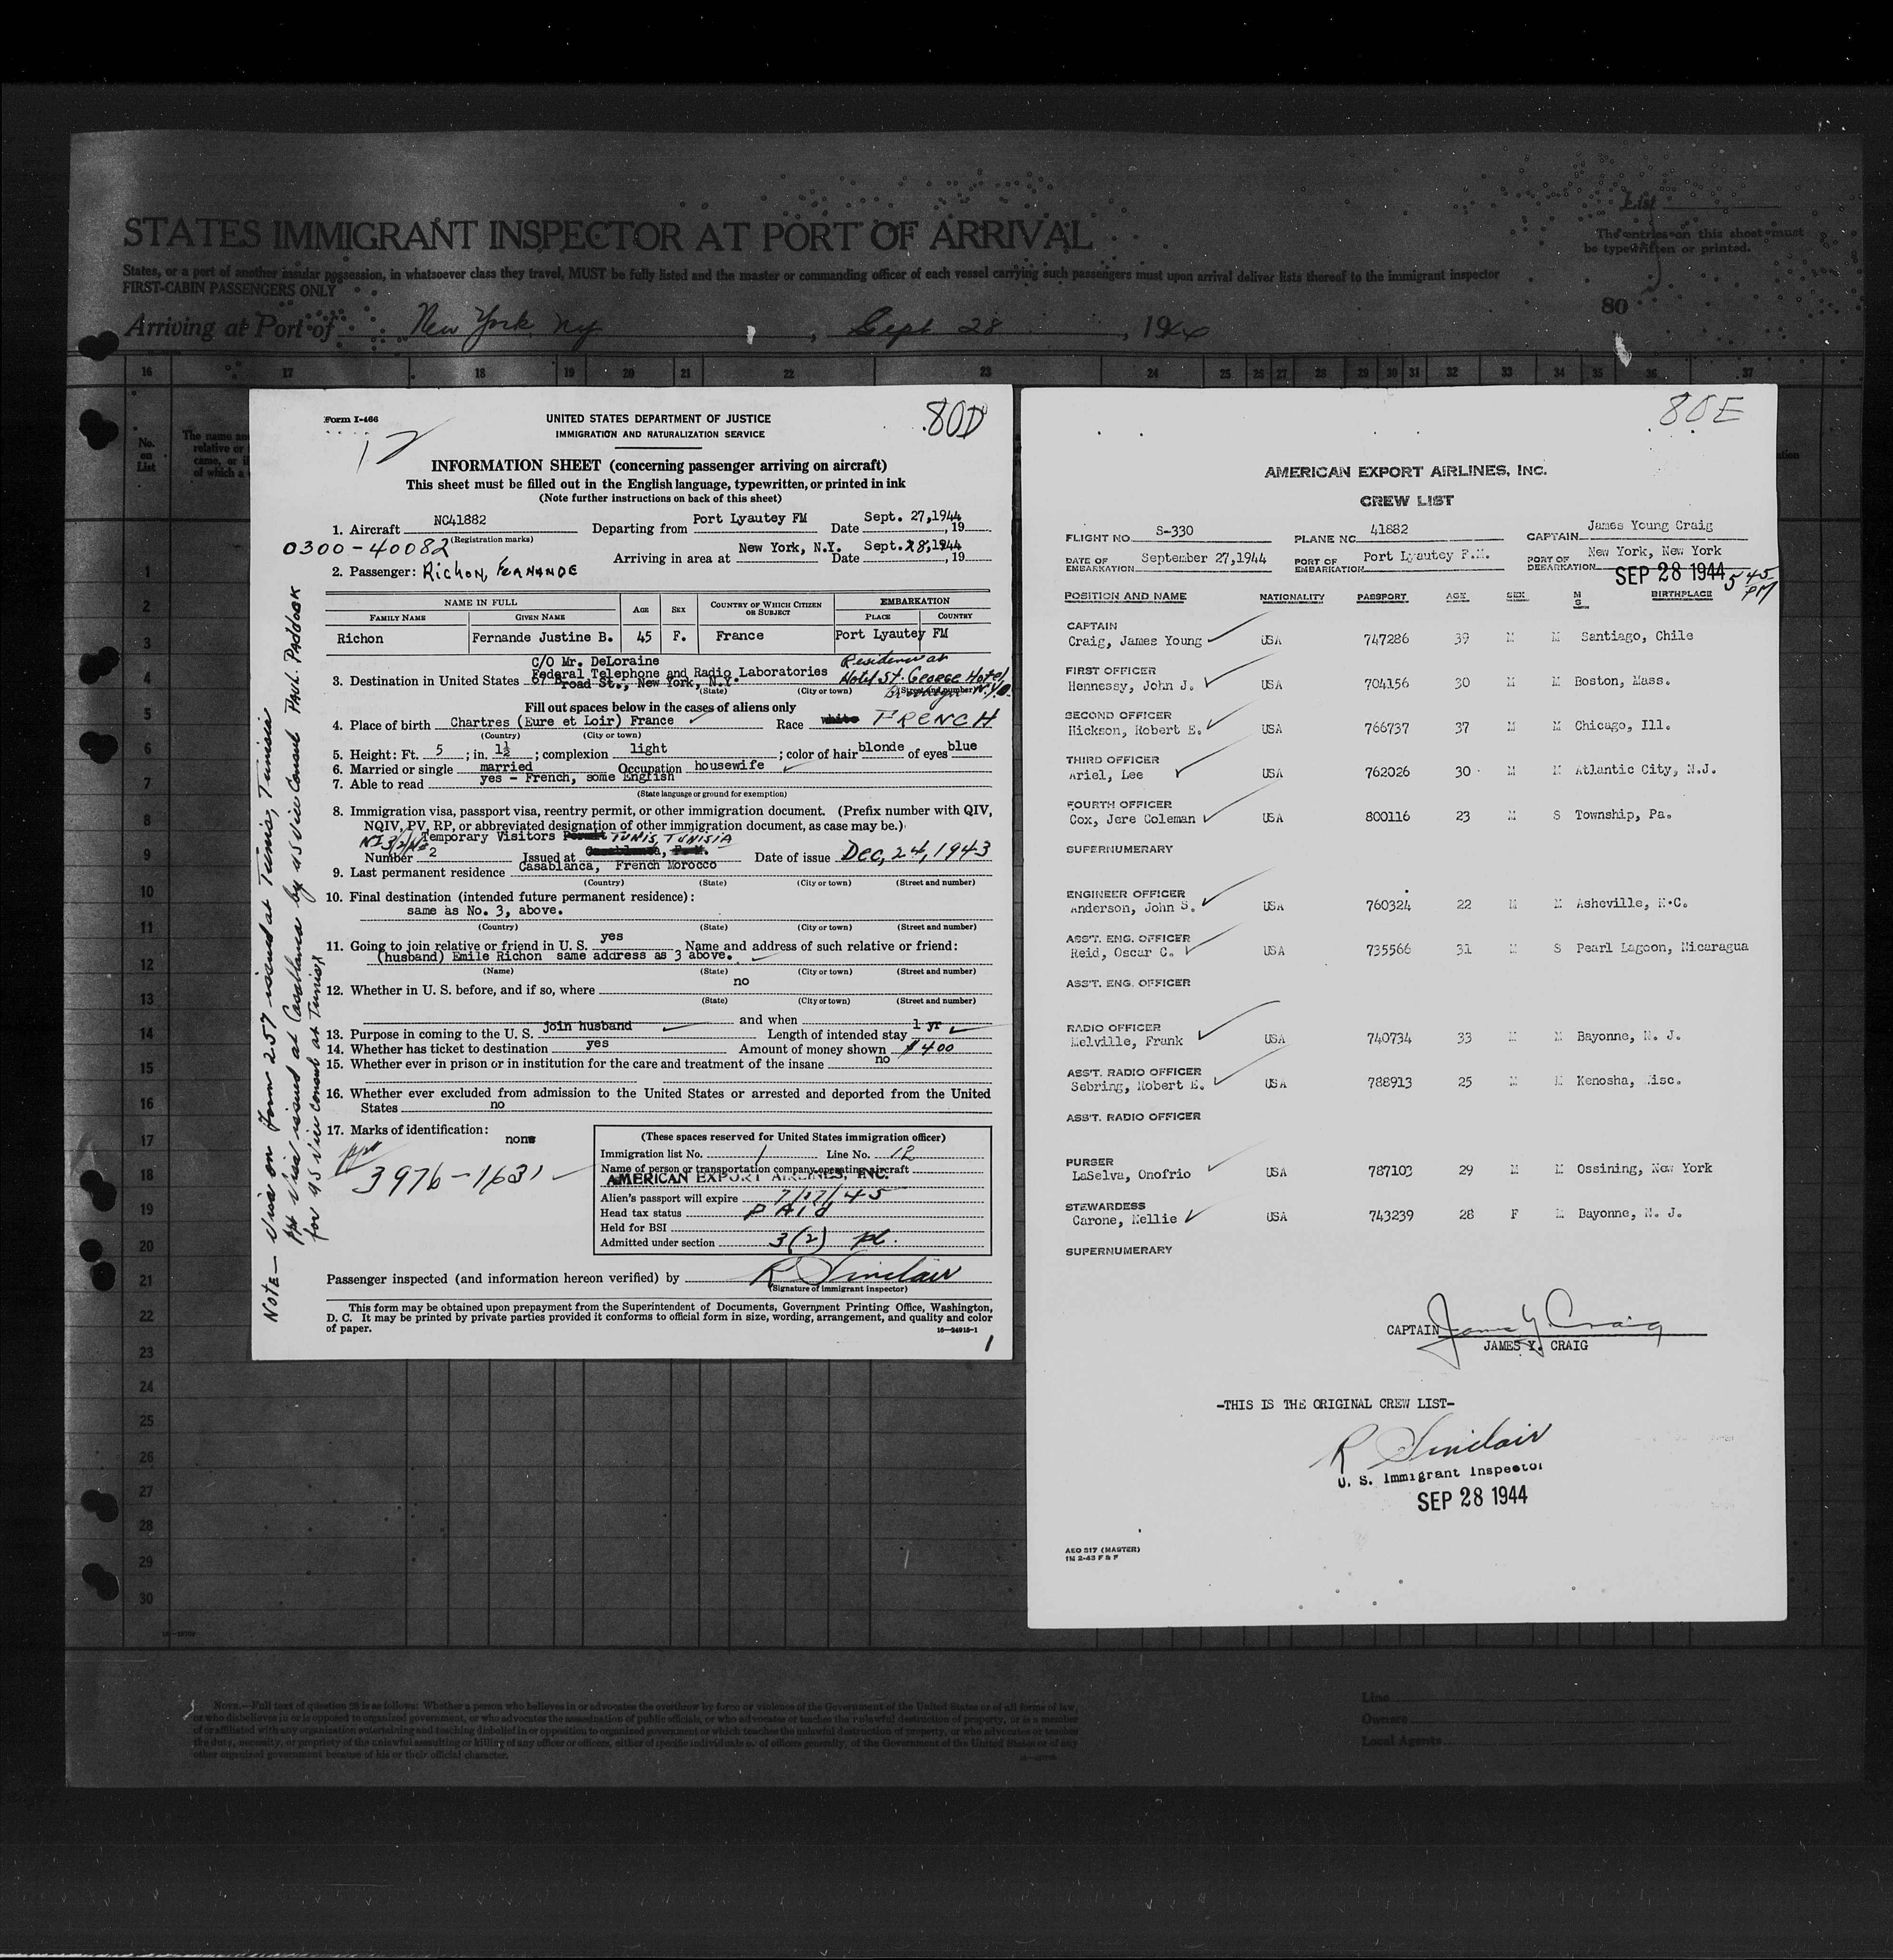 STATES IMMIGRANT INSPECTOR AT PORT OF ARRIVAL
List
The entries on this sheet must
be typewritten or printed.
States, or a port of another insular possession, in whatsoever class they travel, MUST be fully listed and the master or commanding officer of each vessel carrying such passengers must upon arrival deliver lists thereof to the immigrant inspector
FIRST-CABIN PASSENGERS ONLY
80
Arriving at Port of New York NY, Sept 28, 194
16 17 18 19 20 21 22 23 24 25 26 27 28 29 30 31 32 33 34 35 36 37
No.
on
List
1
2
3
4
5
6
7
8
9
10
11
12
13
14
15
16
17
18
19
20
21
22
23
24
25
26
27
28
29
30
Form I-466
12
80D
UNITED STATES DEPARTMENT OF JUSTICE
IMMIGRATION AND NATURALIZATION SERVICE
INFORMATION SHEET (concerning passenger arriving on aircraft)
This sheet must be filled out in the English language, typewritten, or printed in ink
(Note further instructions on back of this sheet)
1. Aircraft NC41882 Departing from Port Lyautey FM Date Sept. 27,1944, 19
(Registration marks)
0300-40082
Arriving in area at New York, N.Y. Date Sept. 28,1944, 19
2. Passenger: Richon, FERNANDE
NAME IN FULL AGE SEX COUNTRY OF WHICH CITIZEN OR SUBJECT EMBARKATION
FAMILY NAME GIVEN NAME PLACE COUNTRY
Richon Fernande Justine B. 45 F. France Port Lyautey FM
C/O Mr. DeLoraine
Federal Telephone and Radio Laboratories
3. Destination in United States 67 Broad St., New York, N.Y.
Residence at
Hotel St. George Hotel
Brooklyn N.Y.
(State) (City or town) (Street and number)
Fill out spaces below in the cases of aliens only
4. Place of birth Chartres (Eure et Loir) France Race white FRENCH
(Country) (City or town)
5. Height: Ft. 5; in. 1½; complexion light; color of hair blonde of eyes blue
6. Married or single married Occupation housewife
7. Able to read yes - French, some English
(State language or ground for exemption)
8. Immigration visa, passport visa, reentry permit, or other immigration document. (Prefix number with QIV,
NQIV, PV, RP, or abbreviated designation of other immigration document, as case may be.)
Temporary Visitors Permit TUNIS, TUNISIA
Number 2 Issued at Casablanca, F.M. Date of issue Dec, 24, 1943
9. Last permanent residence Casablanca, French Morocco
(Country) (State) (City or town) (Street and number)
10. Final destination (intended future permanent residence):
same as No. 3, above.
(Country) (State) (City or town) (Street and number)
11. Going to join relative or friend in U. S. yes Name and address of such relative or friend:
(husband) Emile Richon same address as 3 above.
(Name) (State) (City or town) (Street and number)
12. Whether in U. S. before, and if so, where no
(State) (City or town) (Street and number)
and when
13. Purpose in coming to the U. S. join husband Length of intended stay 1 yr
14. Whether has ticket to destination yes Amount of money shown $400
15. Whether ever in prison or in institution for the care and treatment of the insane no
16. Whether ever excluded from admission to the United States or arrested and deported from the United
States no
17. Marks of identification:
none
ppt
3976-1631
(These spaces reserved for United States immigration officer)
Immigration list No. 1 Line No. 12
Name of person or transportation company operating aircraft
AMERICAN EXPORT AIRLINES, INC.
Alien's passport will expire 7/17/45
Head tax status PAID
Held for BSI
Admitted under section 3(2) pl.
Passenger inspected (and information hereon verified) by R Sinclair
(Signature of immigrant inspector)
This form may be obtained upon prepayment from the Superintendent of Documents, Government Printing Office, Washington,
D. C. It may be printed by private parties provided it conforms to official form in size, wording, arrangement, and quality and color
of paper.
16—24915-1
1
Note — Visa on Form 257 issued at Tunis, Tunisia
ppt visa issued at Casablanca by US Vice Consul PAUL PADDOCK
for US Vice consul at Tunisia
80E
AMERICAN EXPORT AIRLINES, INC.
CREW LIST
FLIGHT NO. S-330 PLANE NO. 41882 CAPTAIN James Young Craig
DATE OF EMBARKATION September 27,1944 PORT OF EMBARKATION Port Lyautey F.M. PORT OF DEBARKATION New York, New York
SEP 28 1944 5 45 PM
POSITION AND NAME NATIONALITY PASSPORT AGE SEX M S BIRTHPLACE
CAPTAIN
Craig, James Young USA 747286 39 M M Santiago, Chile
FIRST OFFICER
Hennessy, John J. USA 704156 30 M M Boston, Mass.
SECOND OFFICER
Hickson, Robert E. USA 766737 37 M M Chicago, Ill.
THIRD OFFICER
Ariel, Lee USA 762026 30 M M Atlantic City, N.J.
FOURTH OFFICER
Cox, Jere Coleman USA 800116 23 M S Township, Pa.
SUPERNUMERARY
ENGINEER OFFICER
Anderson, John S. USA 760324 22 M M Asheville, N.C.
ASS'T. ENG. OFFICER
Reid, Oscar C. USA 735566 31 M S Pearl Lagoon, Nicaragua
ASS'T. ENG. OFFICER
RADIO OFFICER
Melville, Frank USA 740734 33 M M Bayonne, N. J.
ASS'T. RADIO OFFICER
Sebring, Robert E. USA 788913 25 M M Kenosha, Wisc.
ASS'T. RADIO OFFICER
PURSER
LaSelva, Onofrio USA 787103 29 M M Ossining, New York
STEWARDESS
Carone, Nellie USA 743239 28 F M Bayonne, N. J.
SUPERNUMERARY
CAPTAIN James Y Craig
JAMES Y. CRAIG
-THIS IS THE ORIGINAL CREW LIST-
R Sinclair
U. S. Immigrant Inspector
SEP 28 1944
AEO 317 (MASTER)
1M 2-43 F & F
NOTE.—Full text of question 28 is as follows: Whether a person who believes in or advocates the overthrow by force or violence of the Government of the United States or of all forms of law,
or who disbelieves in or is opposed to organized government, or who advocates the assassination of public officials, or who advocates or teaches the unlawful destruction of property, or is a member
of or affiliated with any organization entertaining and teaching disbelief in or opposition to organized government or which teaches the unlawful destruction of property, or who advocates or teaches
the duty, necessity, or propriety of the unlawful assaulting or killing of any officer or officers, either of specific individuals or of officers generally, of the Government of the United States or of any
other organized government because of his or their official character.
Line
Owners
Local Agents